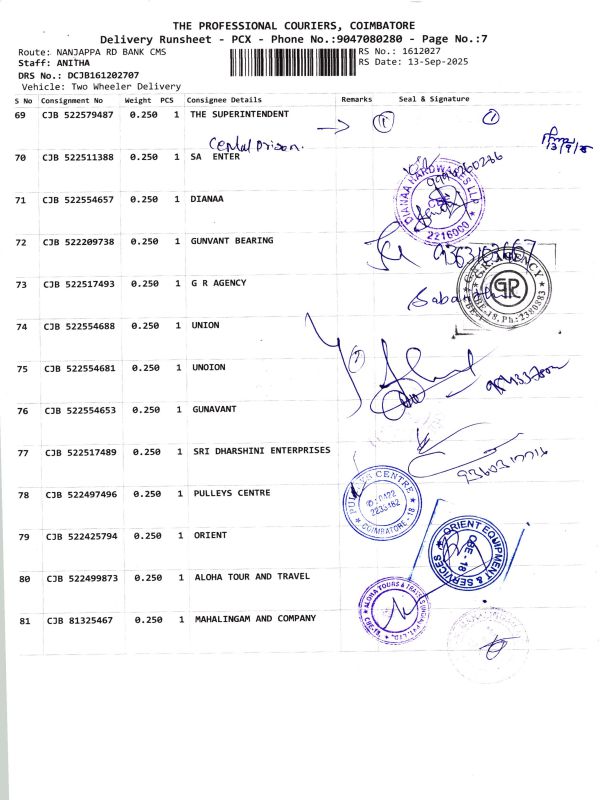 THE PROFESSIONAL COURIERS, COIMBATORE
Delivery Runsheet - PCX - Phone No.:9047080280 - Page No.:7
Route: NANJAPPA RD BANK CMS
RS No.: 1612027
Staff: ANITHA
RS Date: 13-Sep-2025
DRS No.: DCJB161202707
Vehicle: Two Wheeler Delivery
S No Consignment No Weight PCS Consignee Details Remarks Seal & Signature
69 CJB 522579487 0.250 1 THE SUPERINTENDENT
Central prison.
70 CJB 522511388 0.250 1 SA ENTER
71 CJB 522554657 0.250 1 DIANAA
DIANAA HARDWARES LLP
2216000
72 CJB 522209738 0.250 1 GUNVANT BEARING
73 CJB 522517493 0.250 1 G R AGENCY
G.R. AGENCY
CBE-18. Ph: 2380883
74 CJB 522554688 0.250 1 UNION
75 CJB 522554681 0.250 1 UNOION
76 CJB 522554653 0.250 1 GUNAVANT
77 CJB 522517489 0.250 1 SRI DHARSHINI ENTERPRISES
78 CJB 522497496 0.250 1 PULLEYS CENTRE
PULLEYS CENTRE
COIMBATORE - 18
79 CJB 522425794 0.250 1 ORIENT
ORIENT EQUIPMENT & SERVICES
CBE - 18
80 CJB 522499873 0.250 1 ALOHA TOUR AND TRAVEL
ALOHA TOURS & TRAVELS
81 CJB 81325467 0.250 1 MAHALINGAM AND COMPANY